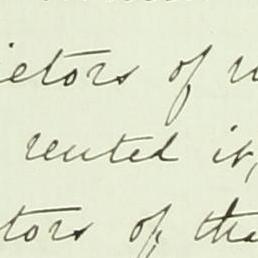 ietors of
rented it,
tors of tha